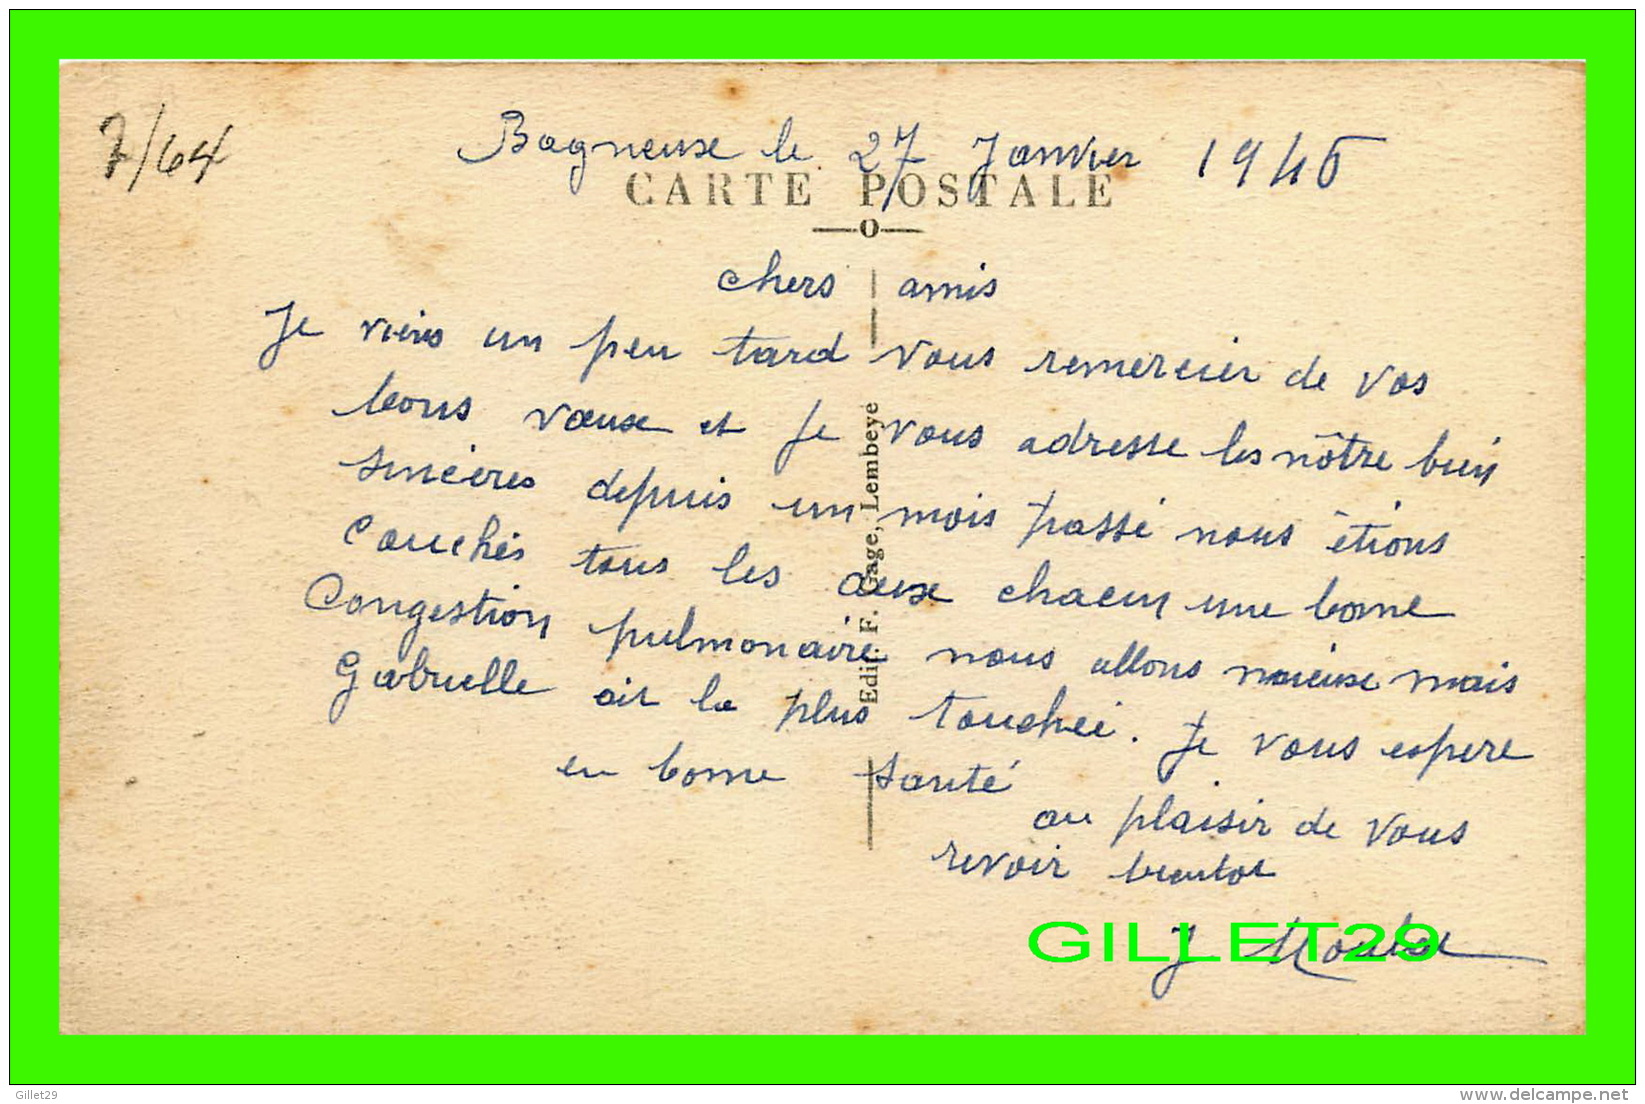 7/64
Bagneuse le 27 Janvier 1945
CARTE POSTALE
chers amis
Je viens un peu tard vous remercier de vos
bons vœuse et Je vous adresse les nôtre bien
sincères depuis un mois passé nous étions
Couchés tous les deuse chacun une bonne
Congestion pulmonaire nous allons mieuse mais
Gabrielle ait la plus touchéé. Je vous espere
en bonne santé
au plaisir de vous
revoir bientot
J
Edit. F. Gage, Lembeye
GILLET29
Gillet29
www.delcampe.net